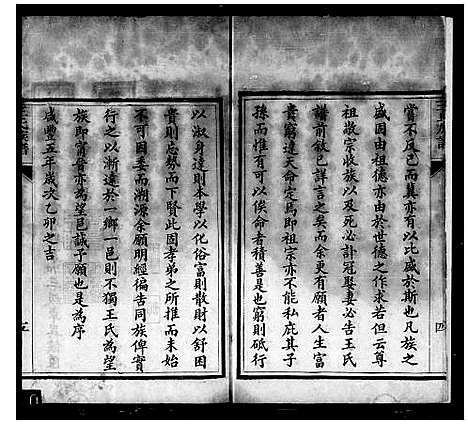 嘗不反己而冀亦有以比盛於斯也凡族之
盛固由祖德亦由於世德之作求若但云尊
祖敬宗收族以及死必訃冠娶妻必告王氏
譜前敘已詳言之矣而余更有願者人生富
貴窮達天命定焉即祖宗亦不能私庇其子
孫而惟有可以俟命者積善是也窮則砥行
四
以淑身達則本學以化俗富則散財以舒困
貴則忘勢而下賢此固孝弟之所推而未始
不可因委而溯源余願明經徧告同族俾實
行之以漸達於一鄉一邑則不獨王氏為望
族即甯晉亦為望邑誠予願也是為序
咸豐五年歲次乙卯之吉
五